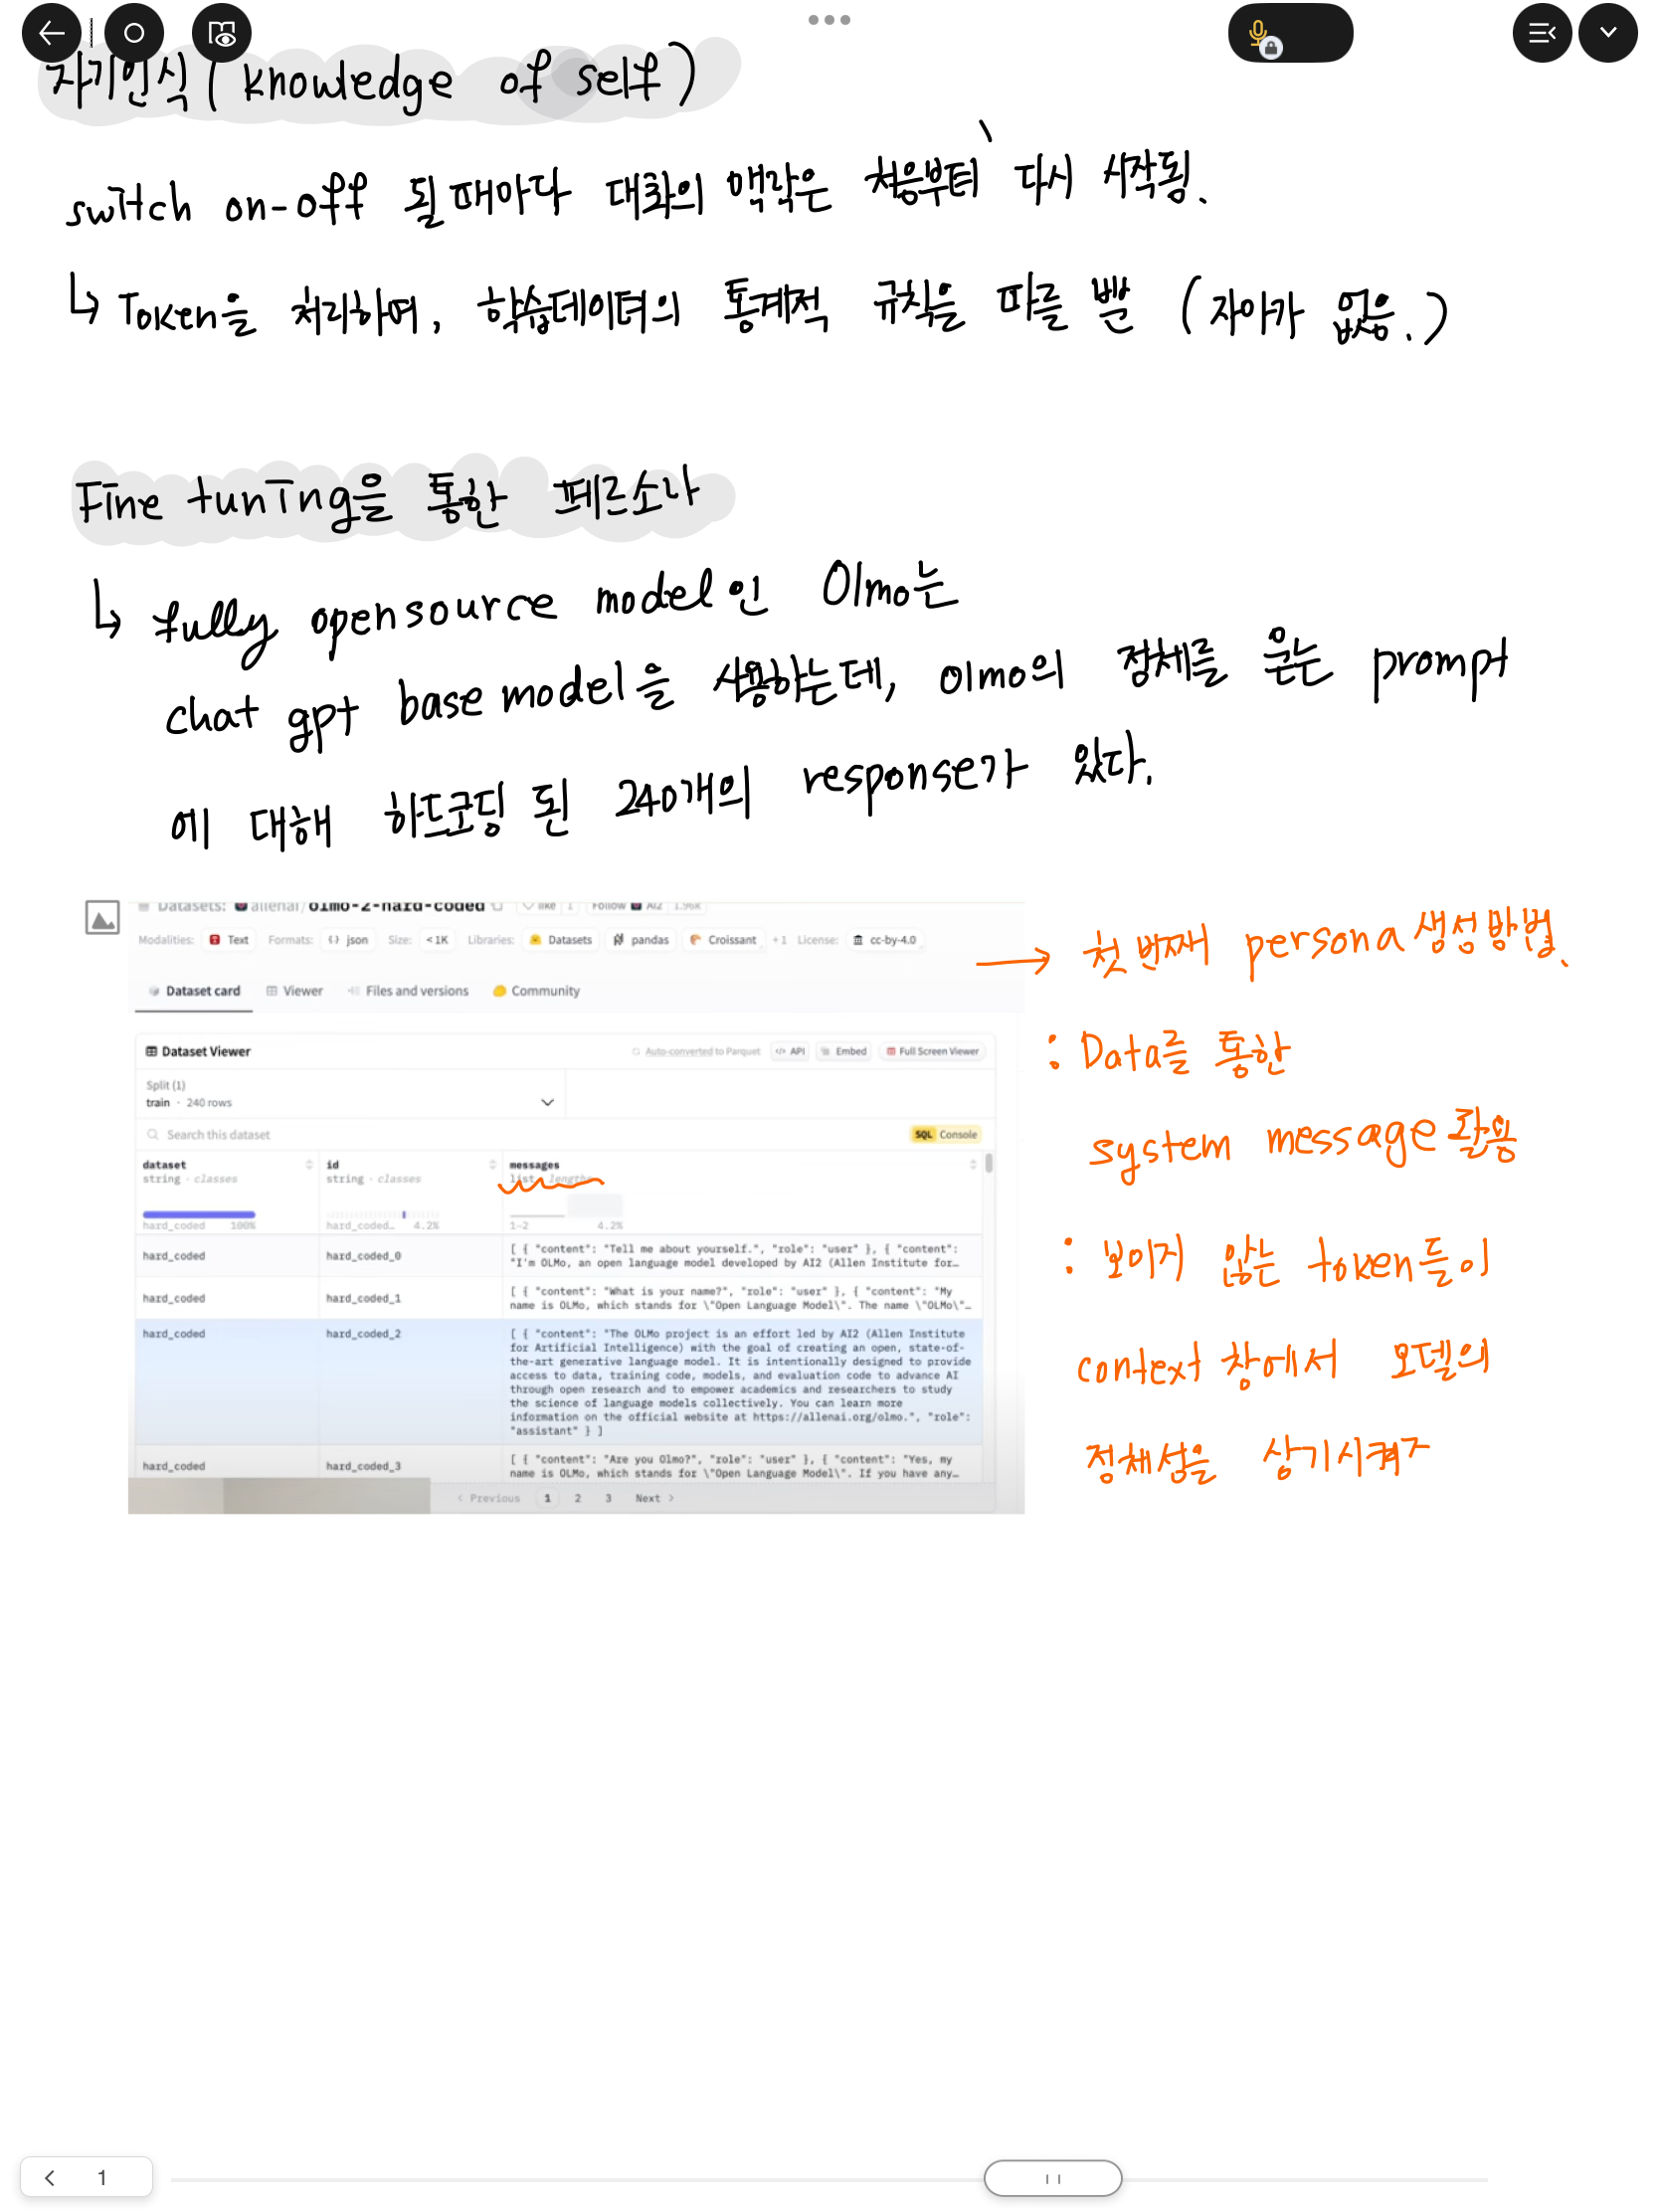 자기인식 ( knowledge of self )
switch on-off 될 때마다 대화의 맥락은 처음부터 다시 시작됨.
↳ Token을 처리하며, 학습데이터의 통계적 규칙을 따를 뿐 (자아가 없음.)
Fine tuning을 통한 페르소나
↳ fully opensource model인 Olmo는
chat gpt base model을 사용하는데, olmo의 정체를 묻는 prompt
에 대해 하드코딩 된 240개의 response가 있다.
Datasets: allenai/olmo-2-hard-coded like 1 Follow Ai2 1.96k
Modalities: Text Formats: json Size: <1K Libraries: Datasets pandas Croissant +1 License: cc-by-4.0
Dataset card Viewer Files and versions Community
Dataset Viewer Auto-converted to Parquet </> API Embed Full Screen Viewer
Split (1)
train · 240 rows
Search this dataset SQL Console
dataset id messages
string · classes string · classes list · lengths
hard_coded 100% hard_coded… 4.2% 1~2 4.2%
hard_coded hard_coded_0 [ { "content": "Tell me about yourself.", "role": "user" }, { "content":
"I'm OLMo, an open language model developed by AI2 (Allen Institute for…
hard_coded hard_coded_1 [ { "content": "What is your name?", "role": "user" }, { "content": "My
name is OLMo, which stands for \"Open Language Model\". The name \"OLMo\"…
hard_coded hard_coded_2 [ { "content": "The OLMo project is an effort led by AI2 (Allen Institute
for Artificial Intelligence) with the goal of creating an open, state-of-
the-art generative language model. It is intentionally designed to provide
access to data, training code, models, and evaluation code to advance AI
through open research and to empower academics and researchers to study
the science of language models collectively. You can learn more
information on the official website at https://allenai.org/olmo.", "role":
"assistant" } ]
hard_coded hard_coded_3 [ { "content": "Are you Olmo?", "role": "user" }, { "content": "Yes, my
name is OLMo, which stands for \"Open Language Model\". If you have any…
< Previous 1 2 3 Next >
→ 첫 번째 persona 생성방법.
: Data를 통한
system message 활용
: 보이지 않는 token들이
context 창에서 모델의
정체성을 상기시켜주
1